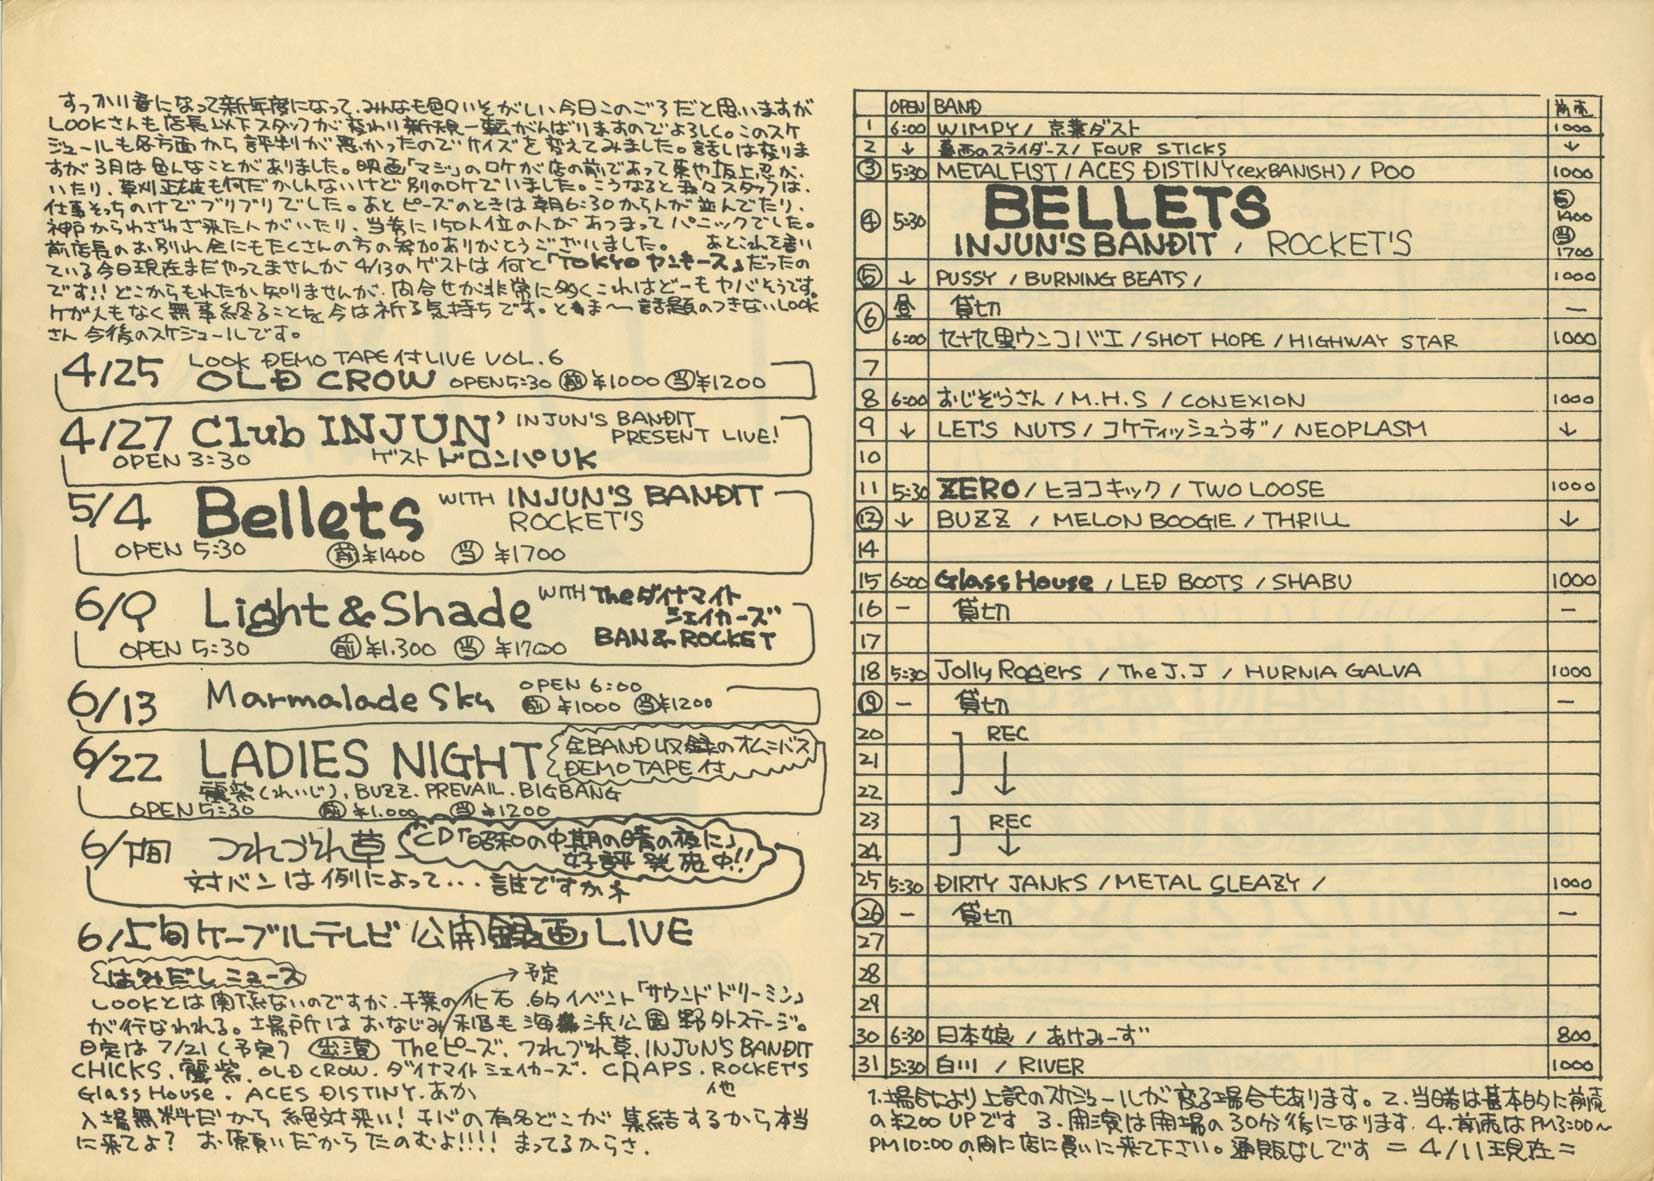 すっかり春になって新年度になって、みんなも色々いそがしい今日このごろだと思いますが
LOOKさんも店長以下スタッフが変わり新規一転がんばりますのでよろしく。このスケ
ジュールも各方面から評判が悪かったのでサイズを変えてみました。話しは変りま
すが3月は色んなことがありました。映画「マジ」のロケが店の前であって東や坂上忍が、
いたり、草刈正雄も何だかしんないけど別のロケでいました。こうなると我々スタッフは、
仕事そっちのけでブリブリでした。あとピーズのときは朝6:30から人が並んでたり、
神戸からわざわざ来た人がいたり、当券に150人位の人があつまってパニックでした。
前店長のお別れ会にもたくさんの方の参加ありがとうございました。 あとこれを書い
ている今日現在まだやってませんが4/13のゲストは何と「TOKYOヤンキース」だったの
です!! どこからもれたか知りませんが、問合せが非常に多くこれはどーもヤバそうです。
ケガ人もなく無事終ることを今は祈る気持ちです。とまぁ〜話題のつきないLOOK
さん今後のスケジュールです。
4/25 LOOK DEMO TAPE付LIVE VOL.6
OLD CROW OPEN5:30 前¥1000 当¥1200
4/27 Club INJUN' INJUN'S BANDIT
PRESENT LIVE!
OPEN 3:30 ゲスト ドロンパUK
5/4 Bellets WITH INJUN'S BANDIT
ROCKET'S
OPEN 5:30 前¥1400 当¥1700
6/9 Light & Shade WITH Theダイナマイト
シェイカーズ
OPEN 5:30 前¥1.300 当¥1700 BAN & ROCKET
6/13 Marmalade Sky OPEN 6:00
前¥1000 当¥1200
6/22 LADIES NIGHT 全BAND収録のオムニバス
DEMO TAPE付
麗紫(れいじ), BUZZ. PREVAIL. BIGBANG
OPEN 5:30 前¥1.000 当¥1200
6/下旬 つれづれ草 CD「昭和の中期の晴の夜に」
好評発売中!!
対バンは例によって... 誰ですかネ
6/上旬ケーブルテレビ公開録画LIVE
はみだしニュース
→予定
LOOKとは関係ないのですが、千葉の化石的イベント「サウンドドリーミン」
が行なわれる。場所はおなじみ稲毛海浜公園野外ステージ。
日定は7/21(予定) 出演 Theピーズ、つれづれ草、INJUN'S BANDIT
CHICKS、麗紫、OLD CROW、ダイナマイトシェイカーズ、CRAPS、ROCKET'S
Glass House、ACES DISTINY、あか 他
入場無料だから絶対来い! チバの有名どこが集結するから本当
に来てよ? お願いだからたのむよ!!!! まってるからさ.
OPEN BAND 前売
1 6:00 WIMPY / 京葉ダスト 1000
2 ↓ 葛西のスライダース / FOUR STICKS ↓
③ 5:30 METALFIST / ACES DISTINY(exBANISH) / POO 1000
④ 5:30 BELLETS 前 1400
INJUN'S BANDIT / ROCKET'S 当 1700
⑤ ↓ PUSSY / BURNING BEATS / 1000
⑥ 昼 貸切 ー
6:00 九十九里ウンコバエ / SHOT HOPE / HIGHWAY STAR 1000
7
8 6:00 おじぞうさん / M.H.S / CONEXION 1000
9 ↓ LET'S NUTS / コケティッシュうず / NEOPLASM ↓
10
11 5:30 ZERO / ヒヨコキック / TWO LOOSE 1000
⑫ ↓ BUZZ / MELON BOOGIE / THRILL ↓
14
15 6:00 Glass House / LED BOOTS / SHABU 1000
16 ー 貸切 ー
17
18 5:30 Jolly Rogers / The J.J / HURNIA GALVA 1000
⑲ ー 貸切 ー
20 REC
21 ↓
22
23 REC
24 ↓
25 5:30 DIRTY JANKS / METAL SLEAZY / 1000
㉖ ー 貸切 ー
27
28
29
30 6:30 日本娘 / あけみーず 800
31 5:30 白川 / RIVER 1000
1.場合により上記のスケジュールが変る場合もあります。2.当日券は基本的に前売
の¥200 UPです 3.開演は開場の30分後になります 4.前売はPM3:00〜
PM10:00の間に店に買いに来て下さい。通販なしです = 4/11現在 =